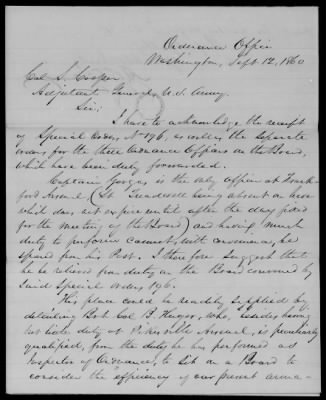 Ordnance Office
Washington, Sept. 12, 1860
Col. S. Cooper
Adjutant General, U.S. Army.
Sir:
I have to acknowledge the receipt
of Special Orders, No 196, as well as the separate
orders for the three Ordnance Officers on the Board,
which have been duly forwarded.
Captain Gorgas, is the only officer at Frank-
ford Arsenal (Lt. Treadwell being absent on leave
which does not expire until after the day fixed
for the meeting of the Board) and having much
duty to perform cannot, with convenience, be
spared from his Post. I therefore suggest that
he be relieved from duty on the Board convened by
said Special Orders, 196.
His place could be readily supplied by
detailing Bvt. Col. B. Huger, who, besides having
not hard duty at Pikesville Arsenal, is peculiarly
qualified, from the duty he has performed as
Inspector of Ordnance, to sit on a Board to
consider the "efficiency of our present arma-